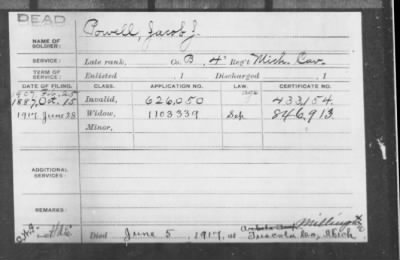 DEAD
NAME OF SOLDIER: Powell, Jacob J.
SERVICE: Late rank, Co. B, 4" Reg't Mich. Cav.
TERM OF SERVICE: Enlisted , 1 Discharged , 1
DATE OF FILING. CLASS. APPLICATION NO. LAW. CERTIFICATE NO.
1887, Oct. 15 Invalid, 626,050 433154.
1917 June 28 Widow, 1103339 846,913
Minor,
ADDITIONAL SERVICES:
REMARKS:
Died June 5, 1917, at Tuscola Co, Mich
Millington